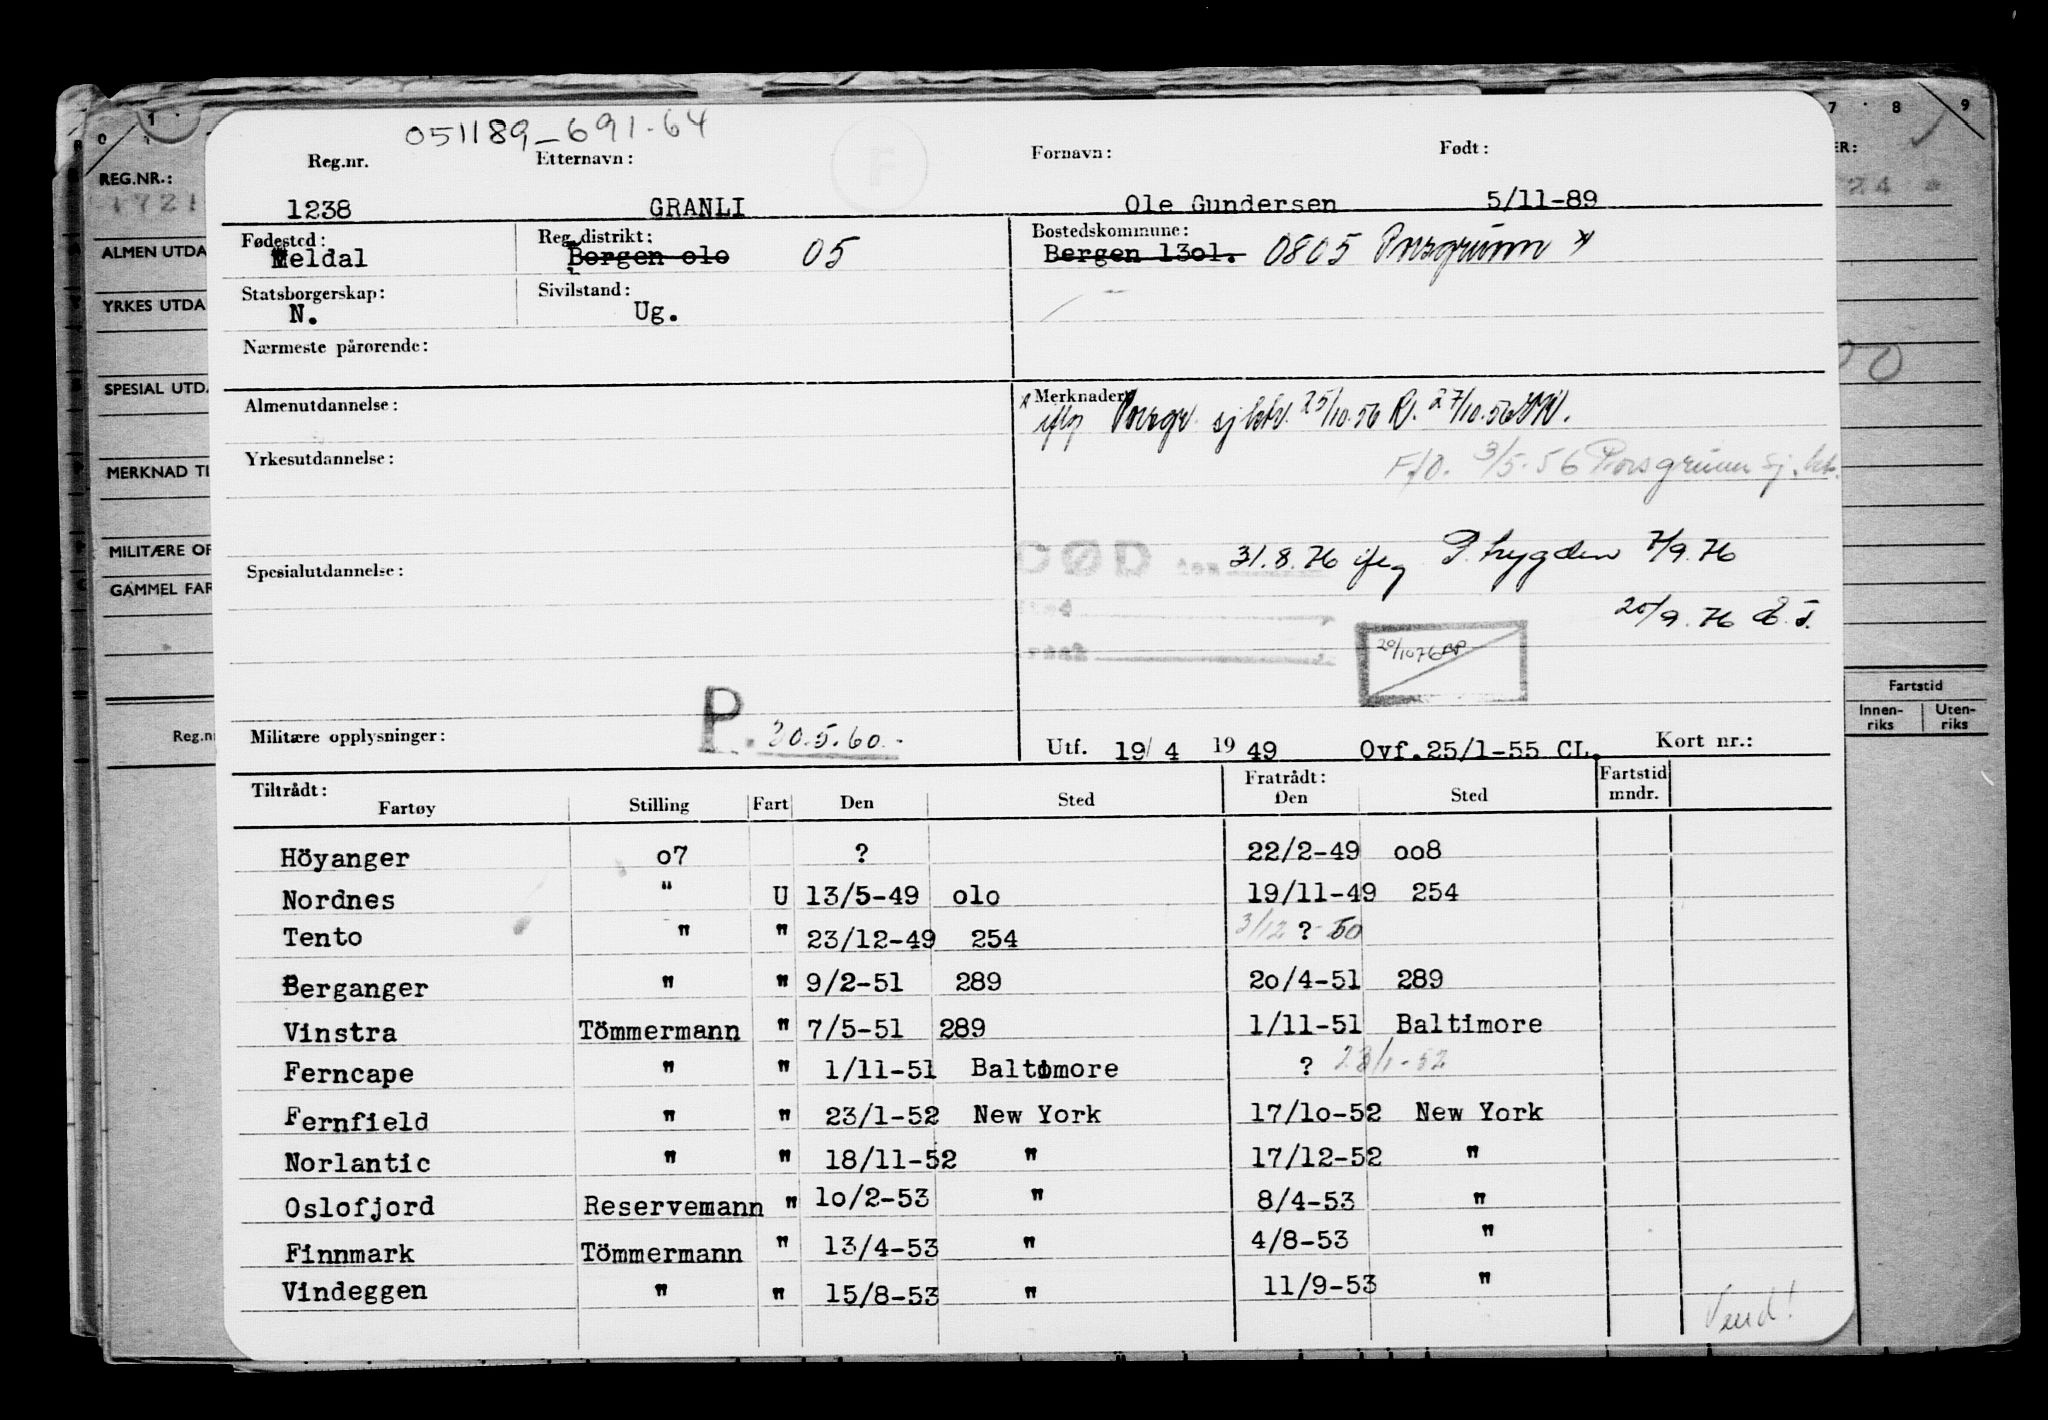 051189-691-64
Reg.nr. Etternavn: Fornavn: Født:
1238 GRANLI Ole Gundersen 5/11-89
Fødested: Reg. distrikt: Bostedskommune:
Meldal Bergen olo 05 Bergen 13ol. 0805 Porsgrunn *
Statsborgerskap: Sivilstand:
N. Ug.
Nærmeste pårørende:
Almenutdannelse: Merknader:
iflg Porsgr sj ktr. 25/10.56 27/10.56
Yrkesutdannelse:
F/O. 3/5-56 Porsgrunn sj. ktr.
DØD den 31.8.76 ifg P. trygden 7/9.76
Spesialutdannelse:
20/9.76
29/1076
P. 30.5.60.-
Militære opplysninger: Utf. 19/4 1949 Ovf.25/1-55 CL. Kort nr.:
Tiltrådt: Fratrådt: Fartstid
Fartøy Stilling Fart Den Sted Den Sted mndr.
Höyanger o7 ? 22/2-49 oo8
Nordnes " U 13/5-49 olo 19/11-49 254
Tento " " 23/12-49 254 3/12 ? 50
Berganger " " 9/2-51 289 2o/4-51 289
Vinstra Tömmermann " 7/5-51 289 1/11-51 Baltimore
Ferncape " " 1/11-51 Baltimore ? 23/1-52
Fernfield " " 23/1-52 New York 17/1o-52 New York
Norlantic " " 18/11-52 " 17/12-52 "
Oslofjord Reservemann " 1o/2-53 " 8/4-53 "
Finnmark Tömmermann " 13/4-53 " 4/8-53 "
Vindeggen " " 15/8-53 " 11/9-53 "
Vend!
0 1 7 8 9
REG.NR.:
1721
ALMEN UTDA
YRKES UTDA
SPESIAL UTD
MERKNAD TI
MILITÆRE OP
GAMMEL FAR
Reg.n
ER:
24
00
Fartstid
Innen-riks Uten-riks